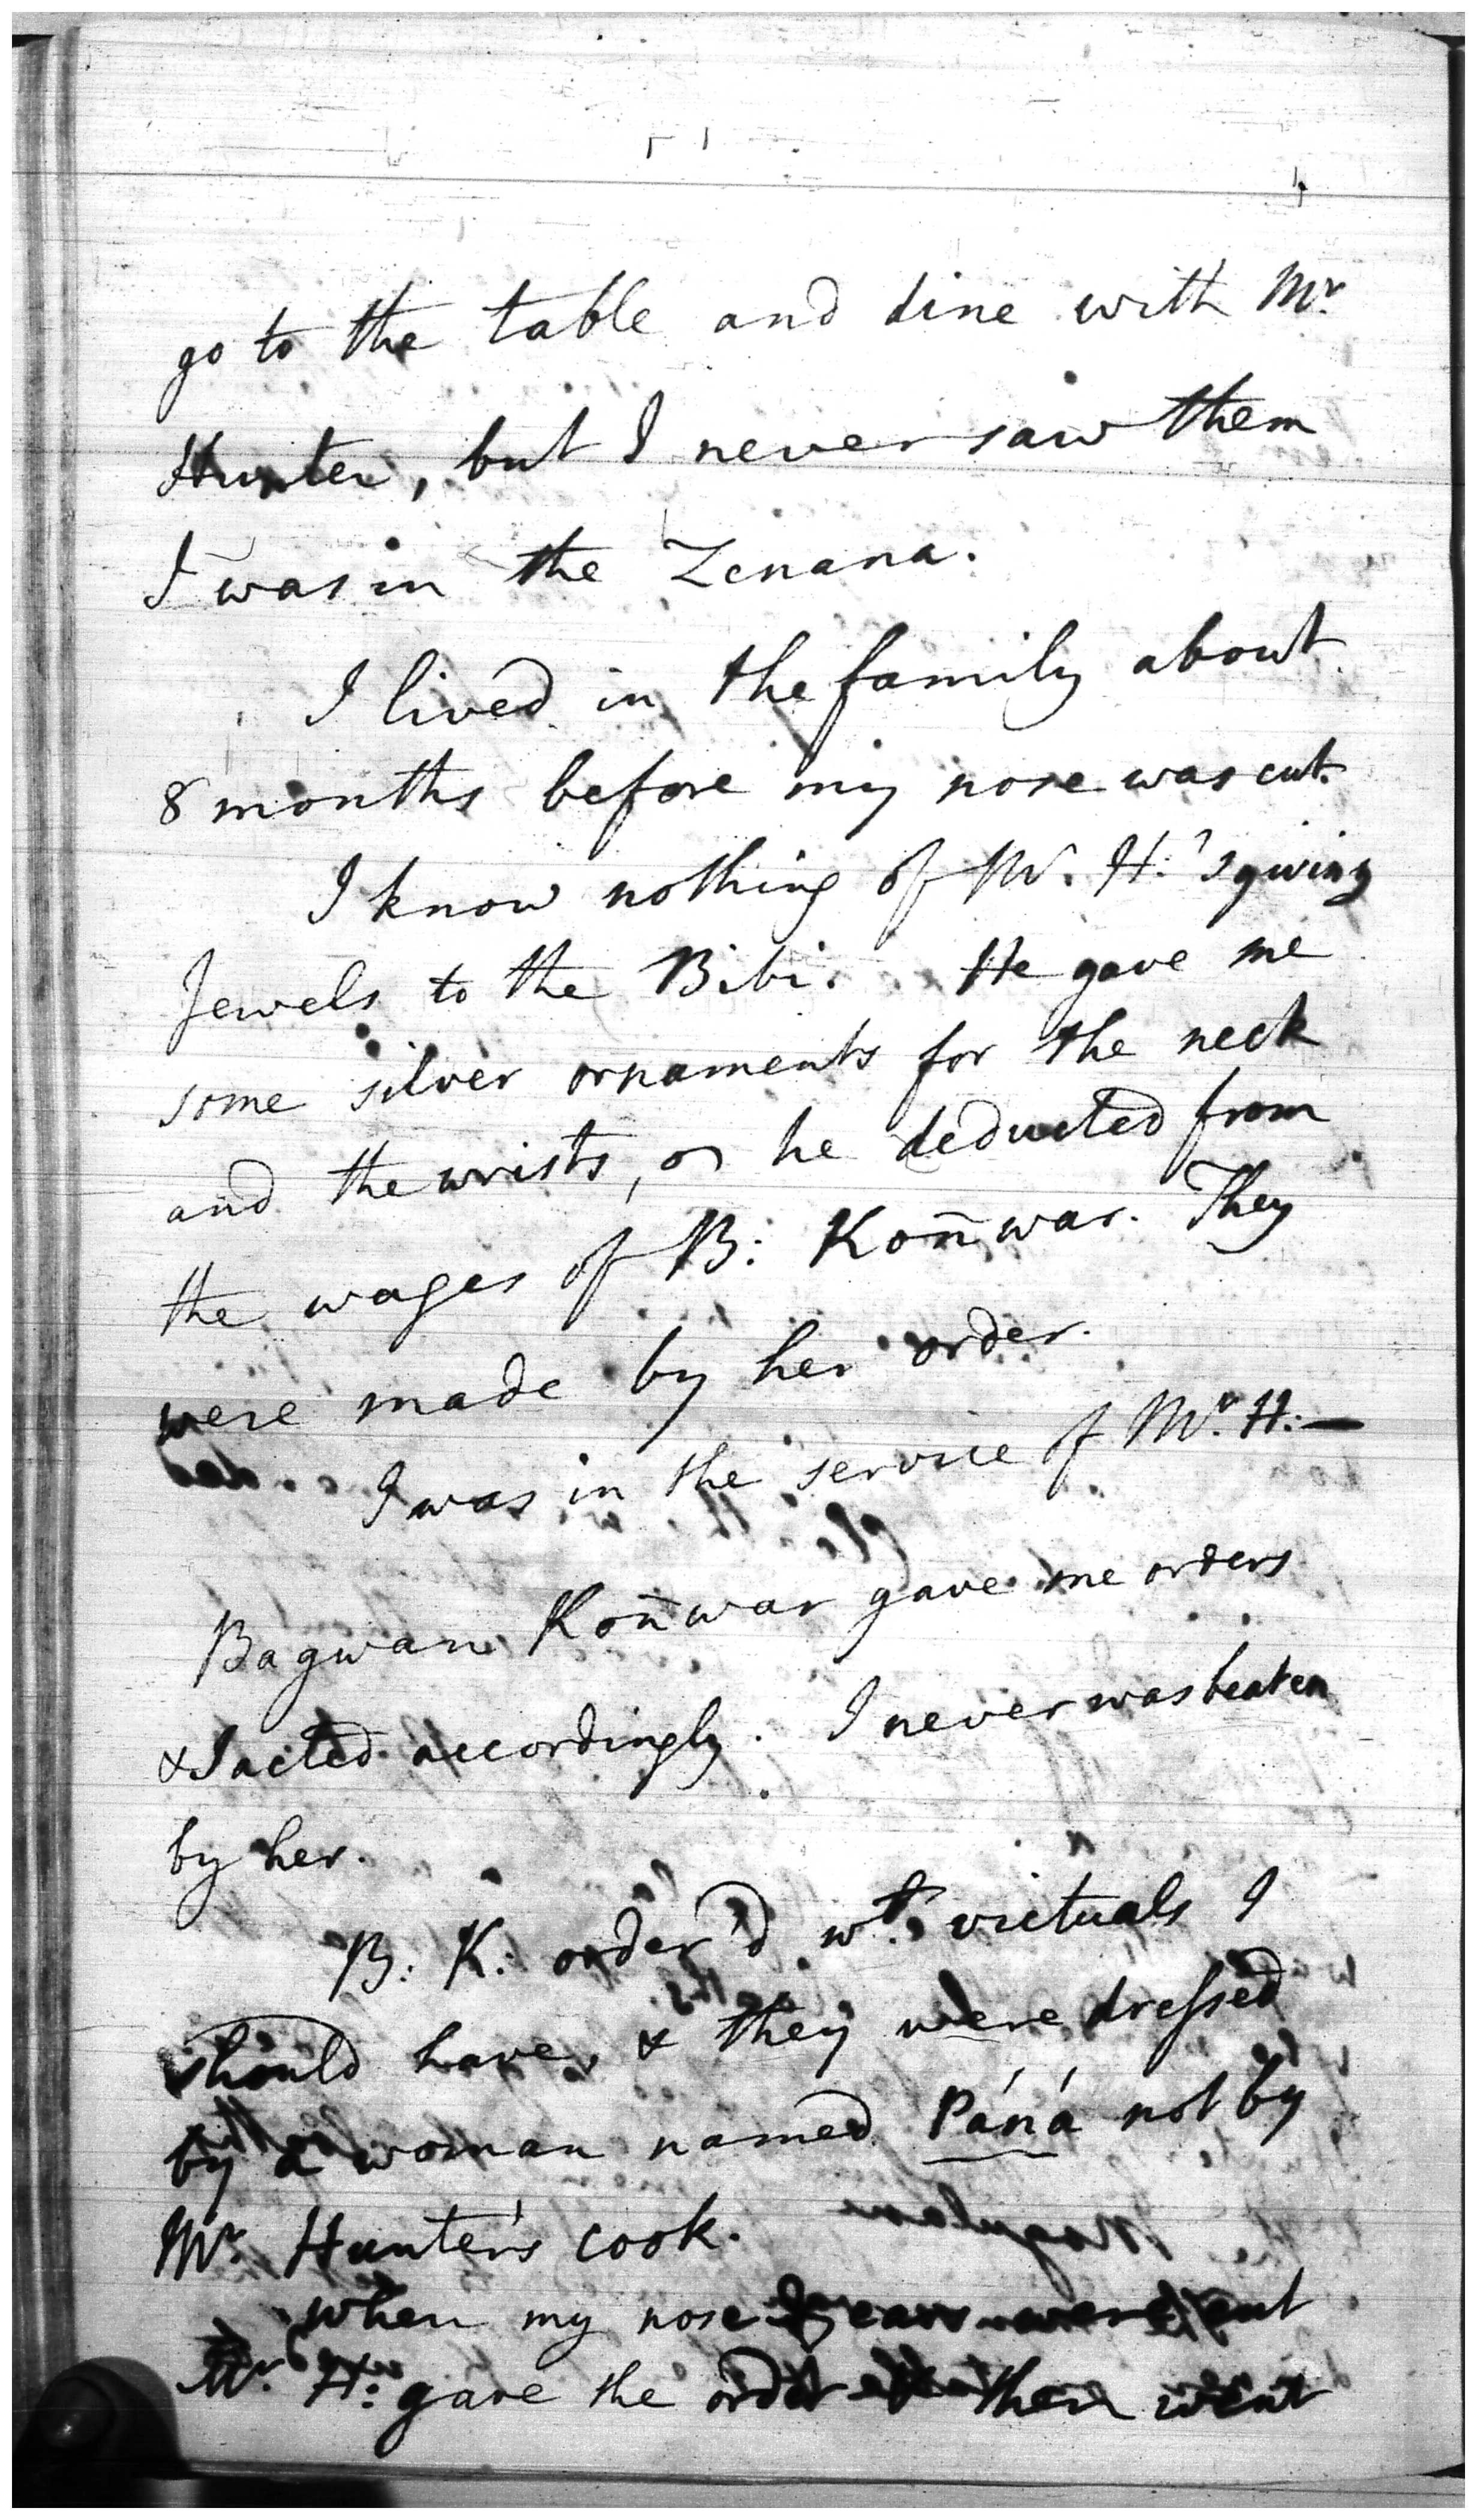 go to the table and dine with Mr.
Hunter, but I never saw them
I was in the Zenana.
I lived in the family about
8 months before my nose was cut.
I know nothing of Mr. H:'s giving
Jewels to the Bibi. He gave me
some silver ornaments for the neck
and the wrists, or he deducted from
the wages of B: Kon̄war. They
were made by her order.
I was in the service of Mr. H:—
Bagwan Kon̄war gave me orders
& I acted accordingly. I never was beaten
by her.
B: K: order'd wt. victuals I
should have, & they were dressed
by a woman named Páná not by
Mr. Hunter's cook.
when my nose & ears were cut
Mr. H: gave the order then went